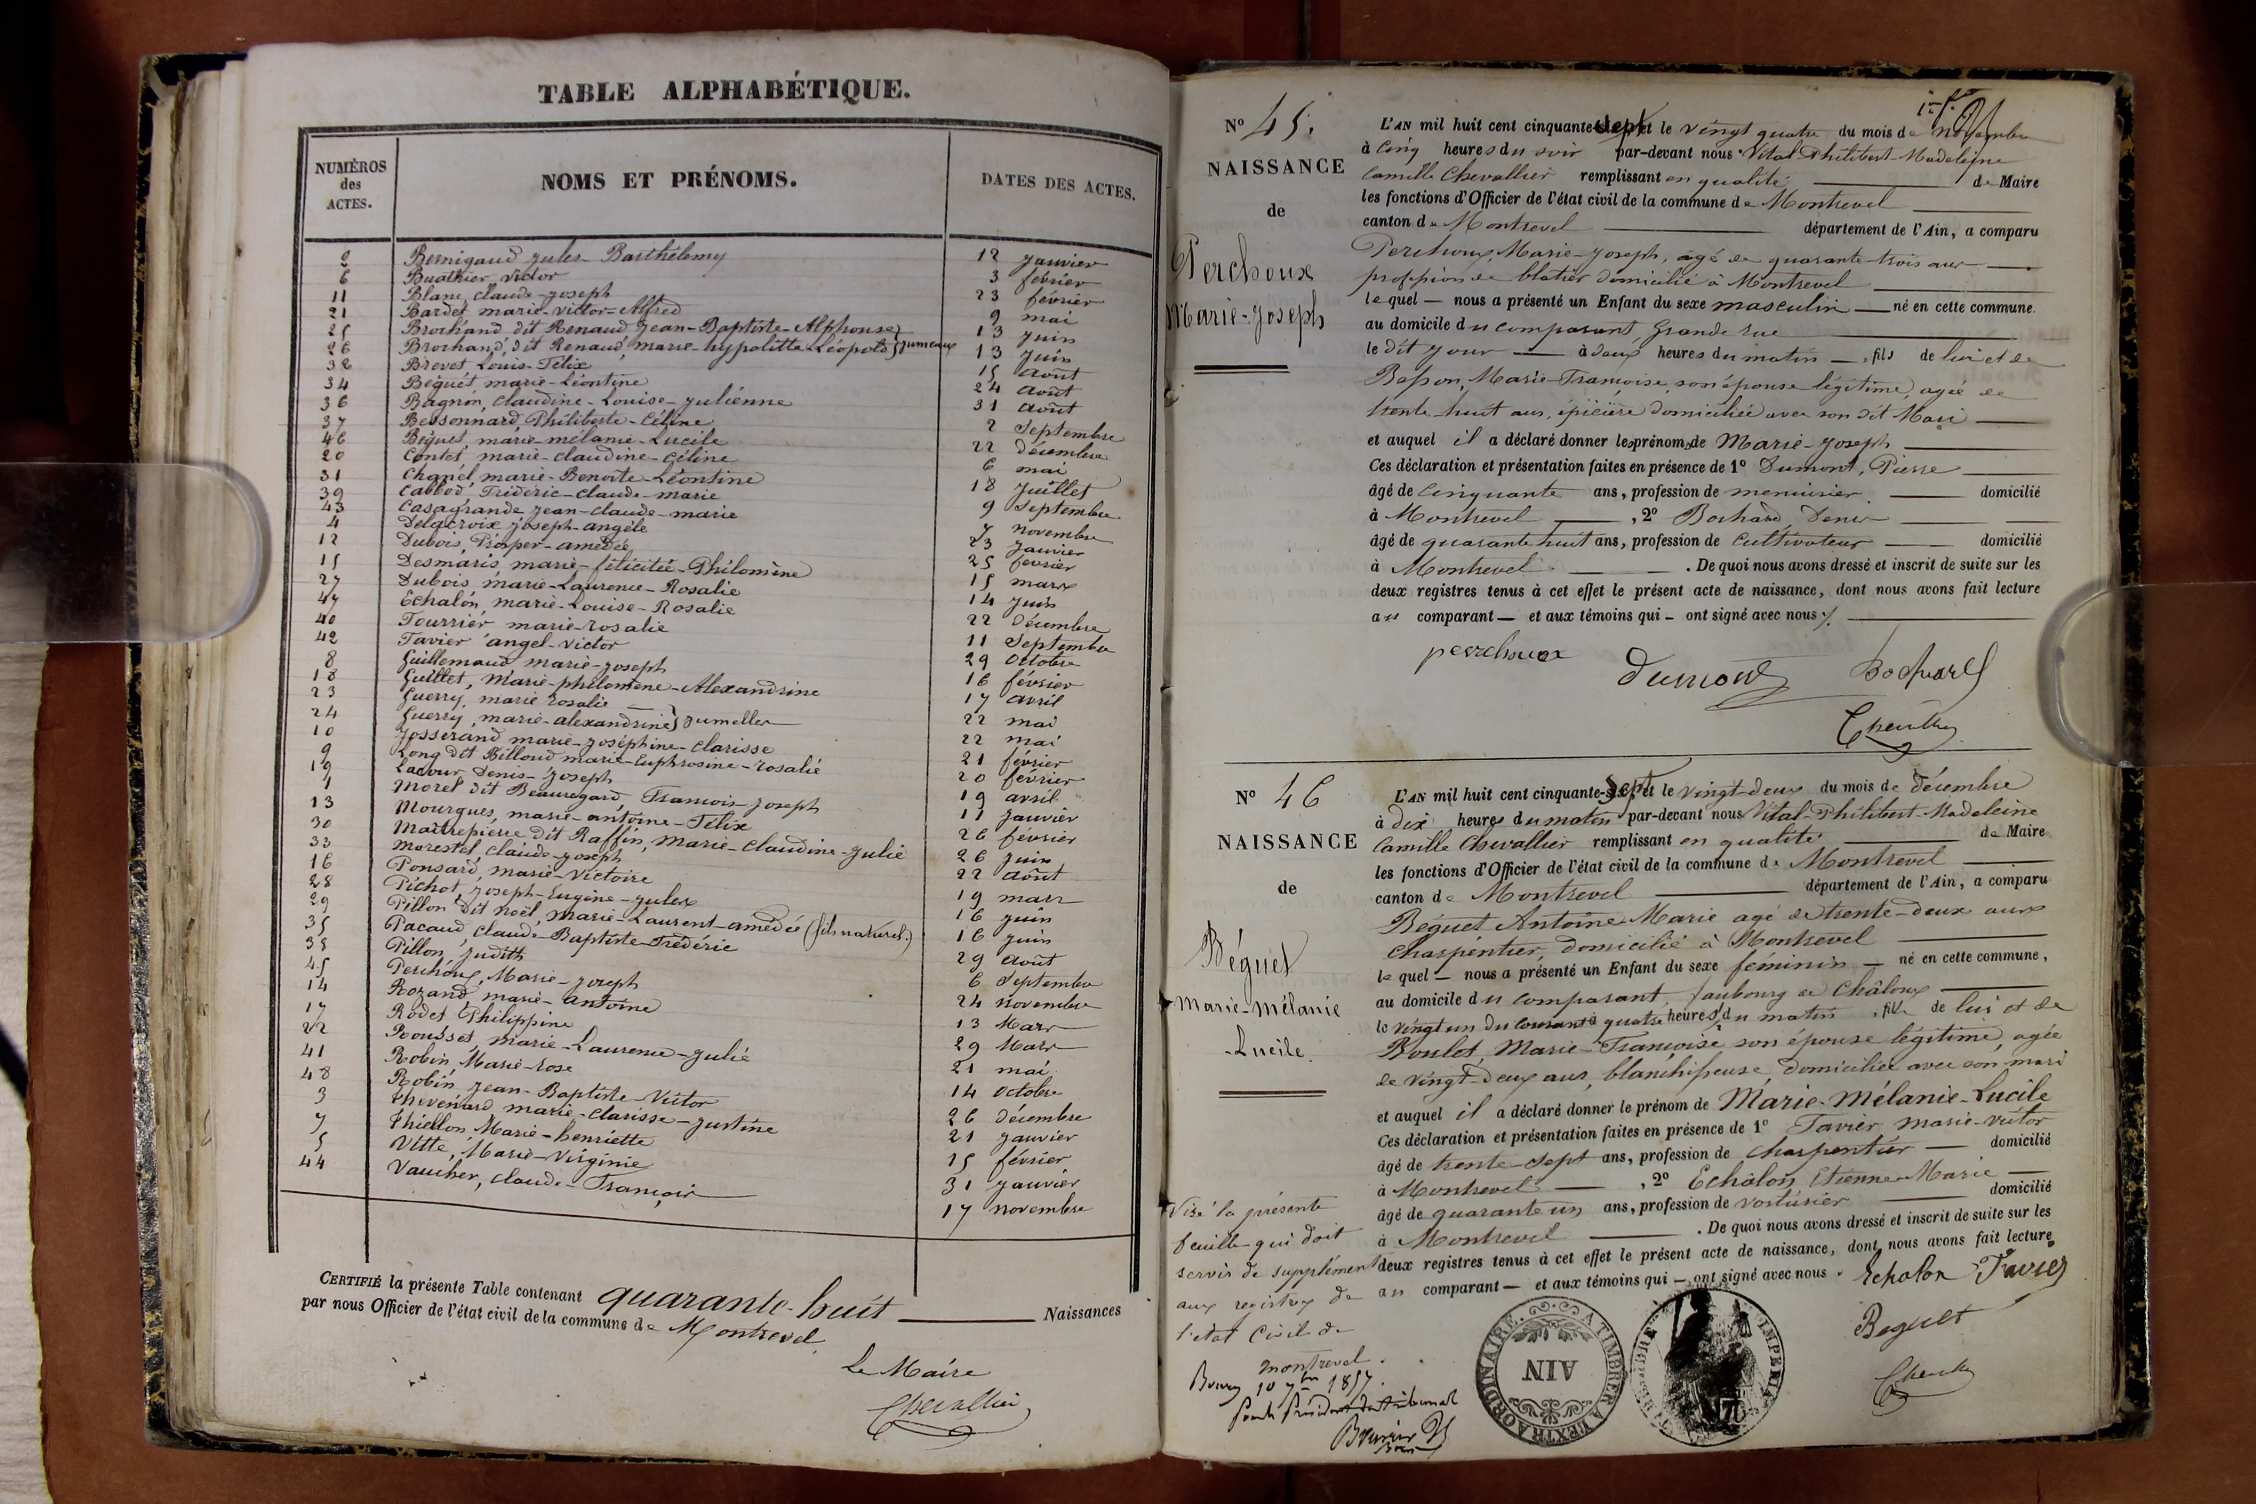 TABLE ALPHABÉTIQUE.
NUMÉROS des ACTES. NOMS ET PRÉNOMS. DATES DES ACTES.
2 Bernigaud Jules-Barthélemy 12 janvier
6 Buathier Victor 3 février
11 Blanc, Claude-Joseph 23 février
21 Bardet marie-Victor-Alfred 9 mai
25 Brochand dit Renaud Jean-Baptiste-Alphonse 13 juin
26 Brochand, dit Renaud, marie-hypolitte-Léopold } jumeaux 13 juin
32 Brevet Louis-Félix 15 août
34 Béguet, marie-Léontine 24 août
36 Bagnon, Claudine-Louise-Julienne 31 août
37 Bessonnard, Philiberte-Céline 2 Septembre
46 Béguet, marie-mélanie-Lucile 22 décembre
20 Contet marie-claudine-céline 6 mai
31 Chanel, marie-Benoite-Léontine 18 juillet
39 Cabbod, Frédéric-claude-marie 9 Septembre
43 Casagrande Jean-claude-marie 7 novembre
4 Delacroix Joseph-angèle 23 janvier
12 Dubois, Prosper-amédée 25 février
15 Desmaris, marie-félicitée-Philomène 15 mars
27 Dubois, marie-Laurence-Rosalie 14 juin
47 Echalon, marie-Louise-Rosalie 22 décembre
40 Fourrier marie-rosalie 11 Septembre
42 Favier angel-victor 29 octobre
8 Guillemaud marie-joseph 16 février
18 Guillet, Marie-philomène-Alexandrine 17 avril
23 Guerry, marie rosalie 22 mai
24 Guerry, marie-alexandrine } jumelles 22 mai
10 Josserand marie-joséphine-clarisse 21 février
9 Long dit Billoud marie-Euphrosine-rosalie 20 février
19 Lacour Denis-Joseph 19 avril
1 Morel dit Beauregard, François-Joseph 11 janvier
13 Mourgues, marie-antoine-Félix 26 février
30 Maîtrepierre dit Raffin, Marie-claudine-julie 26 juin
33 Morestel, claude-joseph 22 août
16 Ponsard, marie-Victoire 19 mars
28 Pichot, Joseph-Eugène-Jules 16 juin
29 Pillon dit noël, marie-Laurent-amédée (fils naturel.) 16 juin
35 Pacaud, Claude-Baptiste-Frédéric 29 août
38 Pillon, judith 6 Septembre
45 Perchoux, Marie-joseph 24 novembre
14 Rozand, marie-antoine 13 Mars
17 Rodet Philippine 29 Mars
22 Rousset, marie-Laurence-julie 21 mai
41 Robin, Marie-rose 14 octobre
48 Robin, Jean-Baptiste-Victor 26 décembre
3 thevenard marie-clarisse-justine 21 janvier
7 thiellon, Marie-henriette 15 février
5 Vitte, Marie-Virginie 31 janvier
44 Vaucher, claude-François 17 novembre
CERTIFIÉ la présente Table contenant quarante-huit Naissances
par nous Officier de l'état civil de la commune de Montrevel.
Le Maire
Chevallier
N° 45.
NAISSANCE
de
Perchoux
Marie-Joseph
L'AN mil huit cent cinquante-sept et le vingt quatre du mois de novembre
à cinq heures du soir par-devant nous Vital-Philibert-Madeleine
Camille Chevallier remplissant en qualité de Maire
les fonctions d'Officier de l'état civil de la commune de Montrevel
canton de Montrevel département de l'Ain, a comparu
Perchoux, Marie-Joseph, agé de quarante-trois ans
profession de blatier domicilié à Montrevel
lequel — nous a présenté un Enfant du sexe masculin — né en cette commune.
au domicile du comparant, Grande rue
le dit jour — à deux heures du matin —, fils de lui et de
Basson, Marie-Françoise, son épouse légitime, agée de
trente-huit ans, épicière domiciliée avec son dit Mari
et auquel il a déclaré donner les prénoms de Marie-Joseph
Ces déclaration et présentation faites en présence de 1° Dumont, Pierre
âgé de cinquante ans, profession de menuisier domicilié
à Montrevel, 2° Bochard, Denis
âgé de quarante huit ans, profession de cultivateur domicilié
à Montrevel. De quoi nous avons dressé et inscrit de suite sur les
deux registres tenus à cet effet le présent acte de naissance, dont nous avons fait lecture
au comparant — et aux témoins qui — ont signé avec nous.
perchoux Dumont Bochard
N° 46
NAISSANCE
de
Béguet
Marie-Mélanie
-Lucile.
L'AN mil huit cent cinquante-sept et le vingt-deux du mois de décembre
à dix heures du matin par-devant nous Vital-Philibert-Madeleine
Camille Chevallier remplissant en qualité de Maire
les fonctions d'Officier de l'état civil de la commune de Montrevel
canton de Montrevel département de l'Ain, a comparu
Béguet Antoine-Marie agé de trente-deux ans
charpentier, domicilié à Montrevel
lequel — nous a présenté un Enfant du sexe féminin — né en cette commune,
au domicile du comparant, faubourg de Châlons
le vingt un du courant à quatre heures du matin, fille de lui et de
Boulet, Marie-Françoise son épouse légitime, agée
de vingt-deux ans, blanchisseuse, domiciliée avec son mari
et auquel il a déclaré donner le prénom de Marie-Mélanie-Lucile
Ces déclaration et présentation faites en présence de 1° Favier, Marie-Victor
âgé de trente-sept ans, profession de charpentier — domicilié
à Montrevel —, 2° Echalon, Etienne-Marie
âgé de quarante un ans, profession de voiturier domicilié
à Montrevel. De quoi nous avons dressé et inscrit de suite sur les
deux registres tenus à cet effet le présent acte de naissance, dont nous avons fait lecture
au comparant — et aux témoins qui — ont signé avec nous.
Echalon Favier
Beguet
Visé la présente
feuille qui doit
servir de supplément
aux registres de
l'état civil de
montrevel.
Bourg 10 7bre 1857.
A TIMBRER A L'EXTRAORDINAIRE.
AIN
TIMBRE IMPERIAL